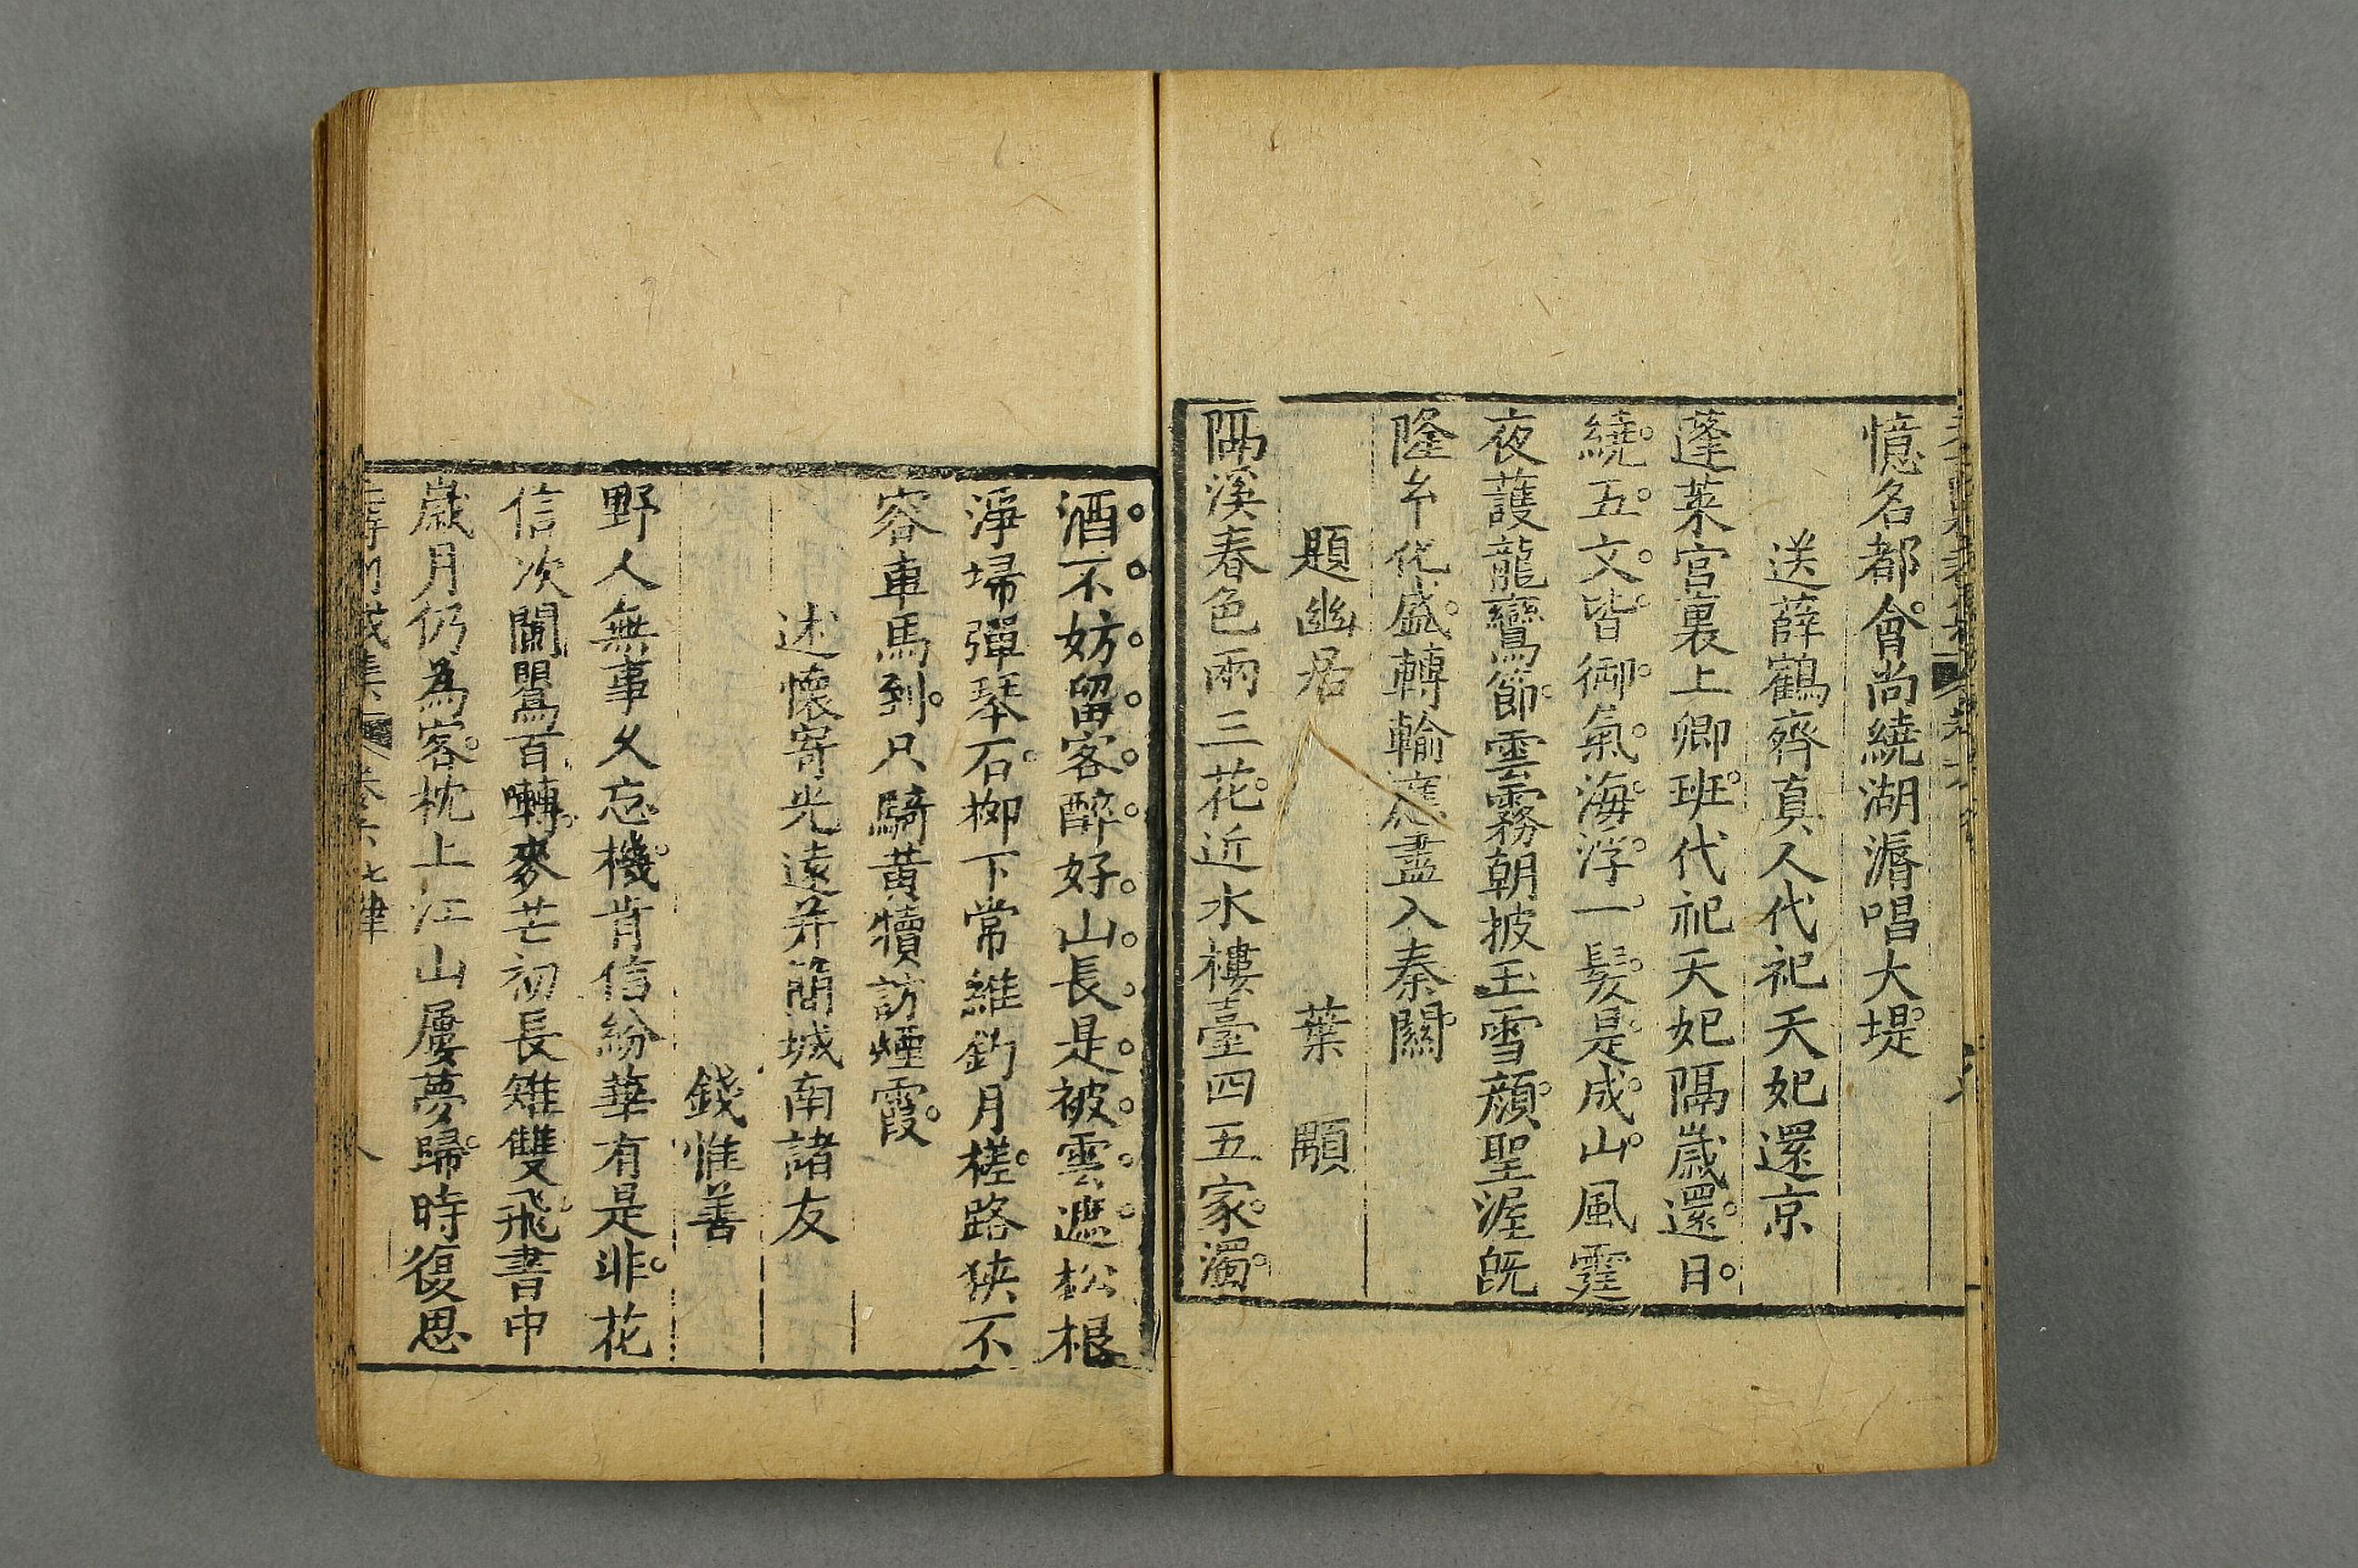 憶名都會。尚繞湖漘唱大堤。
送薛鶴齊真人代祀天妃還京
蓬萊宮裏上卿班。代祀天妃隔歲還。日。
繞。五。文。皆。御。氣。海。浮。一。髮。是。成。山。風霆
夜䕶龍鸞節。雲霧朝披玉雪顔。聖渥旣
隆午化盛。轉輸應盡入秦關。
題幽居 葉顒
隔溪春色兩三花。近水樓臺四五家。濁。
酒。不。妨。留。客。醉。好。山。長。是。被。雲。遮。松根
淨埽彈琹石。栁下常維釣月槎。路狹不
容車馬到。只騎黃犢訪煙霞。
述懷寄光遠并簡城南諸友
錢惟善
野人無事久忘機。肯信紛華有是非。花
信次闌鸎百囀。麥芒初長雉雙飛。書中
歲月仍為客。枕上江山屢夢歸。時復思